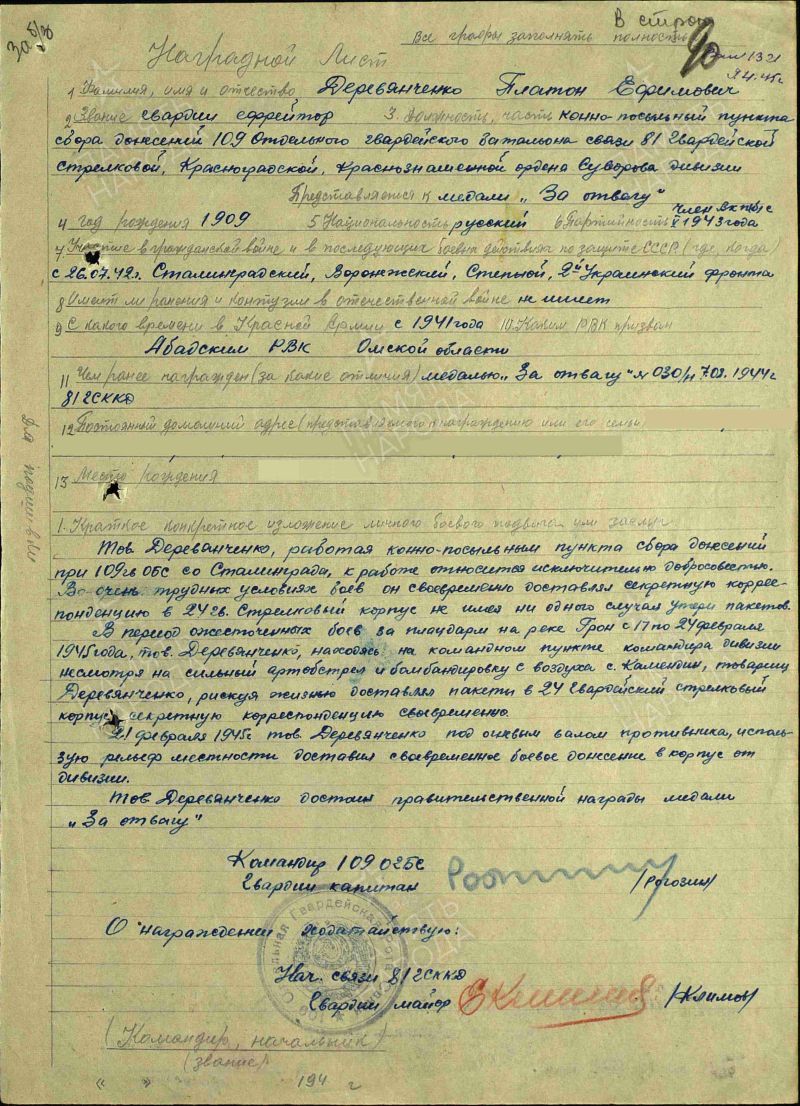 В строю
Все графы заполнять полностью
Наградной Лист
1 Фамилия, имя и отчество Деревянченко Платон Ефимович
2 Звание гвардии ефрейтор 3. Должность, часть конно-посыльный пункта
сбора донесений 109 Отдельного гвардейского батальона связи 81 Гвардейской
стрелковой, Красноградской, Краснознаменной ордена Суворова дивизии
Представляется к медали „За отвагу"
4 год рождения 1909 5 Национальность русский 6 Партийность член ВКП(б) с 1943 года
7 Участие в гражданской войне и в последующих боевых действиях по защите СССР (где, когда)
с 26.07.42г. Сталинградский, Воронежский, Степной, 2й Украинский фронта
8 Имеет ли ранения и контузии в отечественной войне не имеет
9 С какого времени в Красной Армии с 1941 года 10. Каким РВК призван
Абадским РВК Омской области
11 Чем ранее награжден (за какие отличия) медалью „За отвагу" 1944г
81 ГСККД
12 Постоянный домашний адрес (представляемого к награждению или его семьи)
13 Место рождения
1. Краткое конкретное изложение личного боевого подвига или заслуг
Тов. Деревянченко, работая конно-посыльным пункта сбора донесений
при 109 гв ОБС со Сталинграда, к работе относится исключительно добросовестно.
Во очень трудных условиях боев он своевременно доставлял секретную корреc-
понденцию в 24 гв. Стрелковый корпус не имея ни одного случая утери пакетов.
В период ожесточенных боев за плацдарм на реке Грон с 17 по 24 февраля
1945 года, тов. Деревянченко, находясь на командном пункте командира дивизии
несмотря на сильный артобстрел и бомбандировку с воздуха с. Камендин, товарищ
Деревянченко, рискуя жизнью доставлял пакеты в 24 Гвардейский стрелковый
корпус секретную корреспонденцию своевременно.
21 февраля 1945г. тов. Деревянченко под огневым валом противника, исполь-
зую рельеф местности доставил своевременное боевое донесение в корпус от
дивизии.
Тов Деревянченко достоин правительственной награды медали
„За отвагу"
Командир 109 ОБС
Гвардии капитан /Рогозин/
О награждении ходатайствую:
Нач. связи 81 ГСККД
Гвардии майор /Климов/
(Командир, начальник)
(звание)
" " 194 г
Для подшивки
ПАМЯТЬ НАРОДА